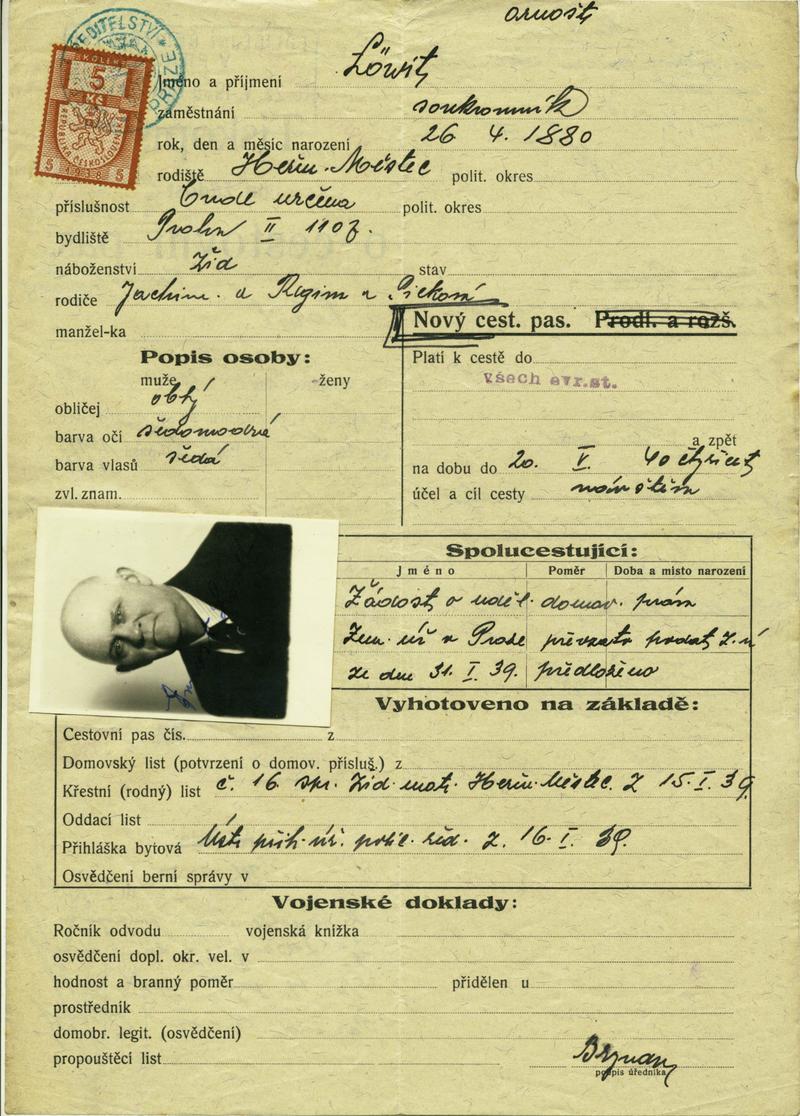 Arnošt
Löwit
Jméno a příjmení
zaměstnání soukromník
rok, den a měsíc narození 26 4. 1880
rodiště Heřm. Městec polit. okres
příslušnost bude určena polit. okres
bydliště Praha II 1107.
náboženství žid stav
rodiče Joachim. a Regina r. Picková
manžel-ka
Nový cest. pas. Prodl. a rozš.
Popis osoby:
muže ženy
obličej oblý
barva očí šedomodrá
barva vlasů šedá
zvl. znam.
Platí k cestě do
všech evr.st.
a zpět
na dobu do 20. V. 40 čtyřicet
účel a cíl cesty
Spolucestující:
Jméno Poměr Doba a místo narození
Žádost o uděl. domov. práva
Zem. úř v Praze převzato podat
ze dne 31. I. 39. předloženo
Vyhotoveno na základě:
Cestovní pas čís. z
Domovský list (potvrzení o domov. přísluš.) z
Křestní (rodný) list č. 16 spr. Žid. mat. Heřm. Městec. z 15. I. 39.
Oddací list
Přihláška bytová Ústř. přih. úř. polic. řed. z. 16. I. 39.
Osvědčení berní správy v
Vojenské doklady:
Ročník odvodu vojenská knížka
osvědčení dopl. okr. vel. v
hodnost a branný poměr přidělen u
prostředník
domobr. legit. (osvědčení)
propouštěcí list
podpis úředníka
KOLEK
5
Kč
REPUBLIKA ČESKOSLOVENSKÁ
5 1938 5